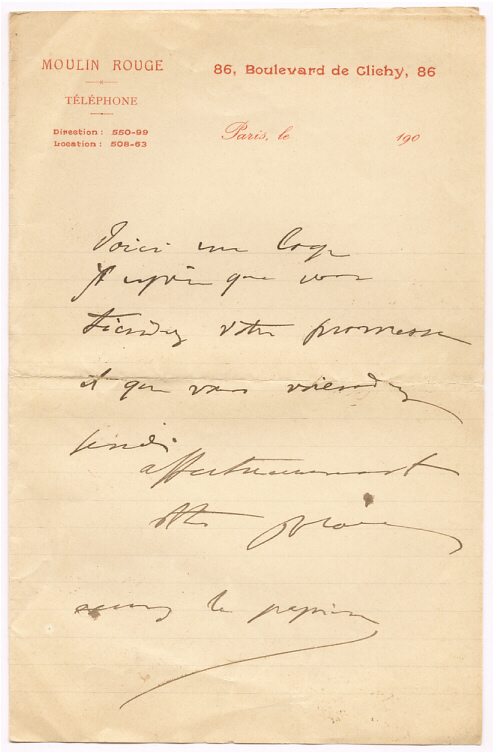 MOULIN ROUGE
TÉLÉPHONE
Direction: 550-99
Location: 508-63
86, Boulevard de Clichy, 86
Paris, le 190
Voici une loge
J'espère que vous
tiendrez votre promesse
et que vous viendrez
lundi
affectueusement
le papier